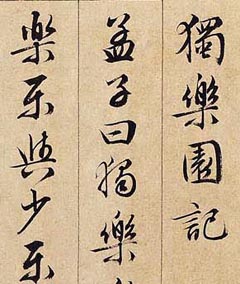 獨樂園記
孟子曰獨樂
樂不與少樂